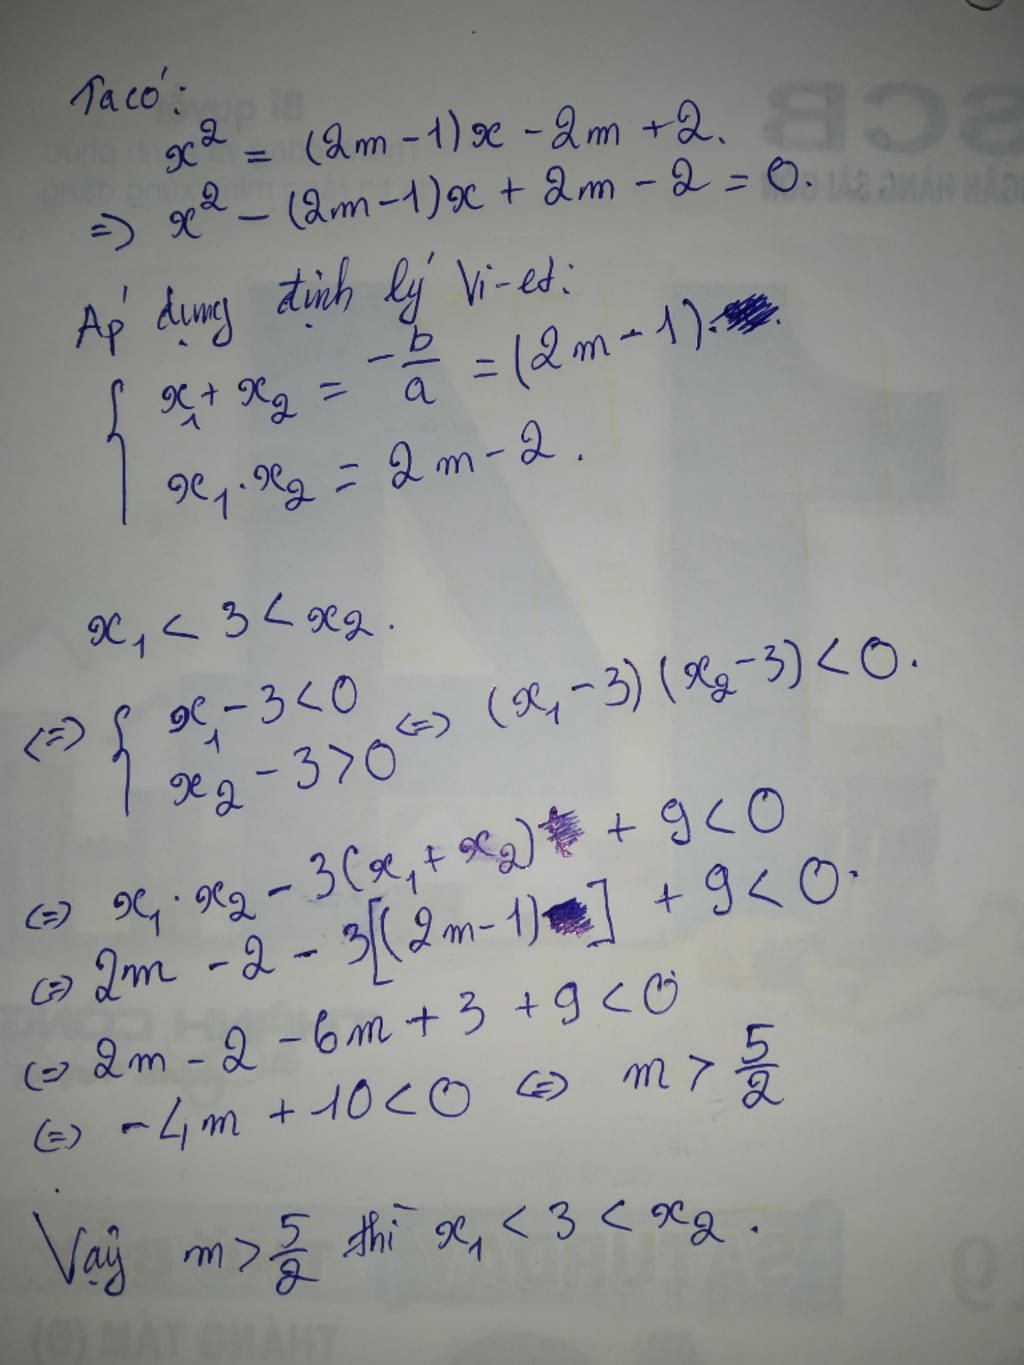 Ta có:
x² = (2m - 1)x - 2m + 2.
=> x² - (2m-1)x + 2m - 2 = 0.
Áp dụng định lý Vi-et:
{ x₁ + x₂ = -b/a = (2m - 1).
x₁ . x₂ = 2m - 2 .
x₁ < 3 < x₂ .
<=> { x₁ - 3 < 0
x₂ - 3 > 0 <=> (x₁ - 3)(x₂ - 3) < 0.
<=> x₁ . x₂ - 3(x₁ + x₂) + 9 < 0
<=> 2m - 2 - 3[(2m-1)] + 9 < 0.
<=> 2m - 2 - 6m + 3 + 9 < 0
<=> -4m + 10 < 0 <=> m > 5/2
Vậy m > 5/2 thì x₁ < 3 < x₂ .